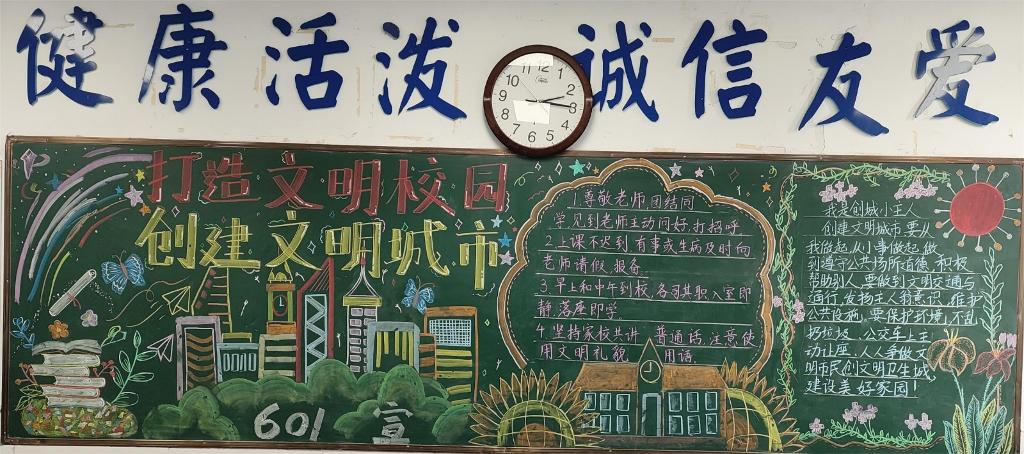 健康活泼 诚信友爱
12
1
2
3
4
5
6
7
8
9
10
11
打造文明校园
创建文明城市
601 宣
1.尊敬老师,团结同
学,见到老师主动问好,打招呼
2.上课不迟到,有事或生病及时向
老师请假、报备
3.早上和中午到校,各司其职,入室即
静,落座即学
4.坚持家校共讲 普通话,注意使
用文明礼貌 用语
我是创城小主人
创建文明城市,要从
我做起,从小事做起,做
到遵守公共场所道德,积极
帮助别人,要做到文明交通与
通行,发扬主人翁意识,维护
公共设施,要保护环境,不乱
扔垃圾,公交车上主
动让座,人人争做文
明市民,创文明卫生城
建设美好家园!